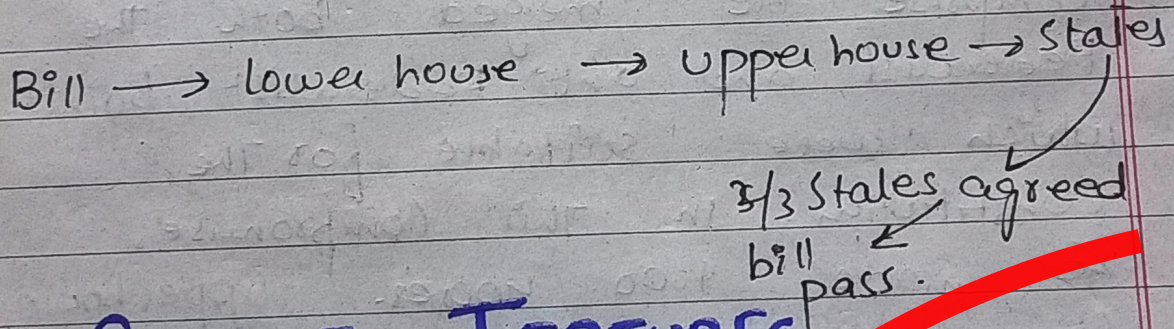 Bill → lower house → upper house → States
/3 States agreed
bill
pass.